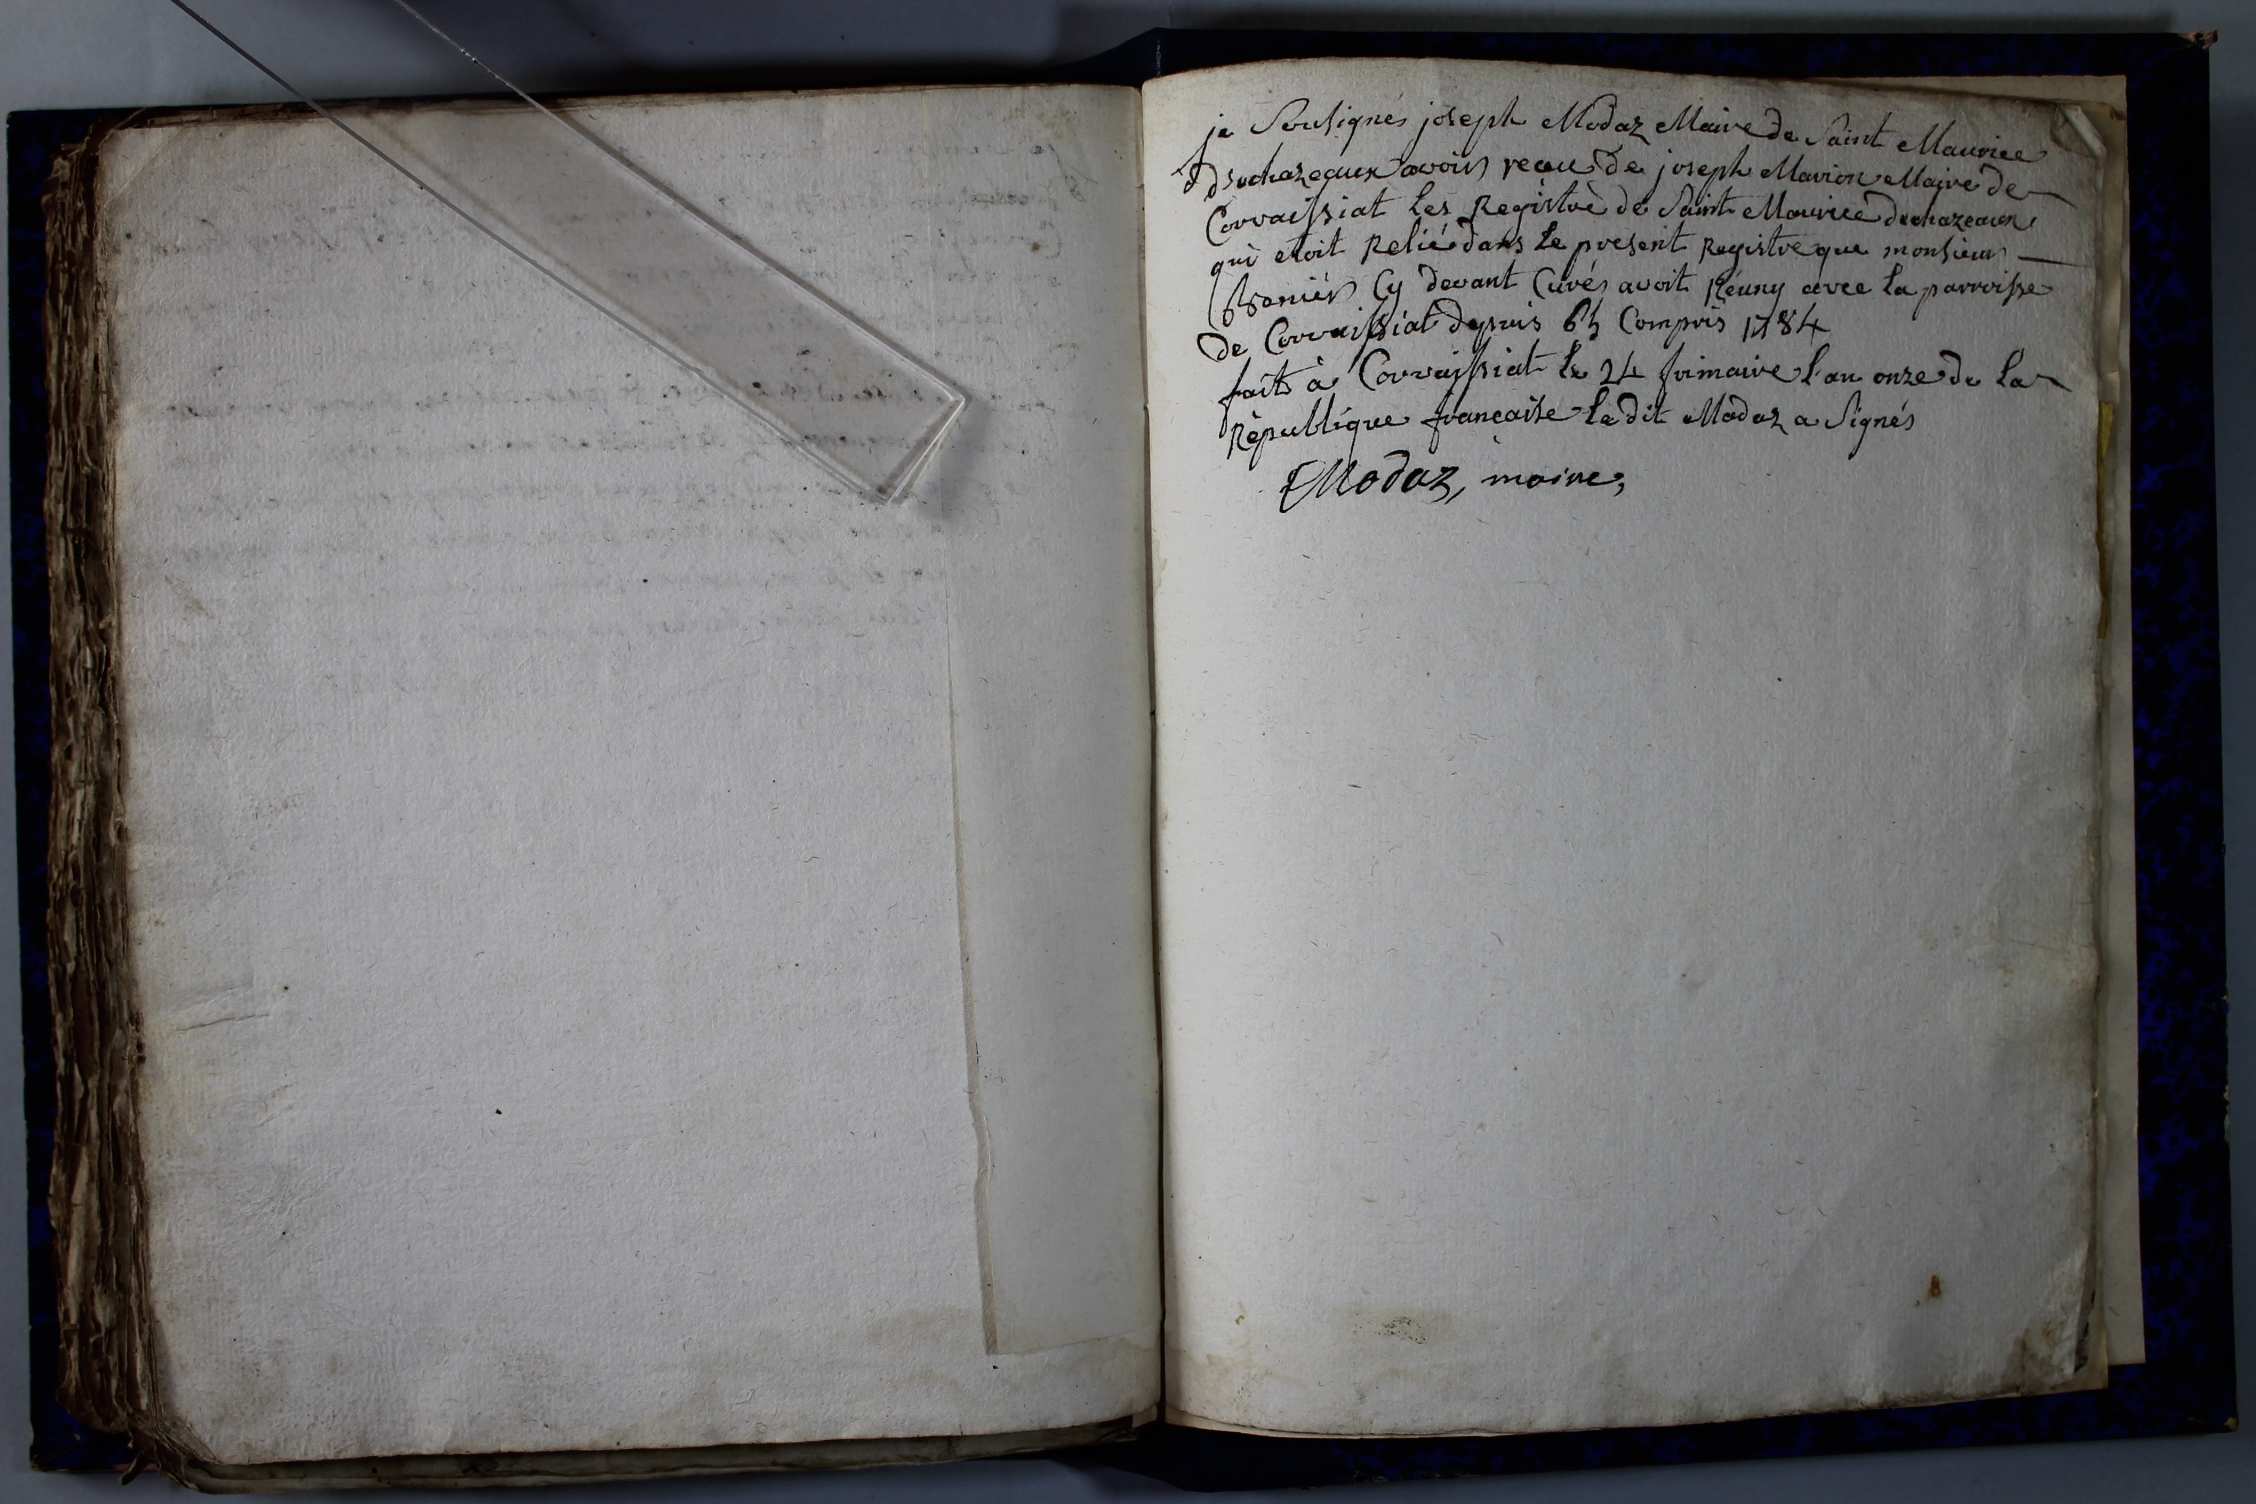 je Sousignés joseph Modaz Maire de Saint Maurice
dechazeaux avoir recu de joseph Marion Maire de
Corvaissiat les Registré de Saint Maurice dechazeaux
qui etoit Relié dans le present Registre que monsieur
Cy devant Curés avoit Réuny avec la parroisse
de Corvaissiat depuis Compris 1784
faits à Corvaissiat le 24 frimaire l'an onze de la
République francaise ledit Modaz a Signés
Modaz, maire,